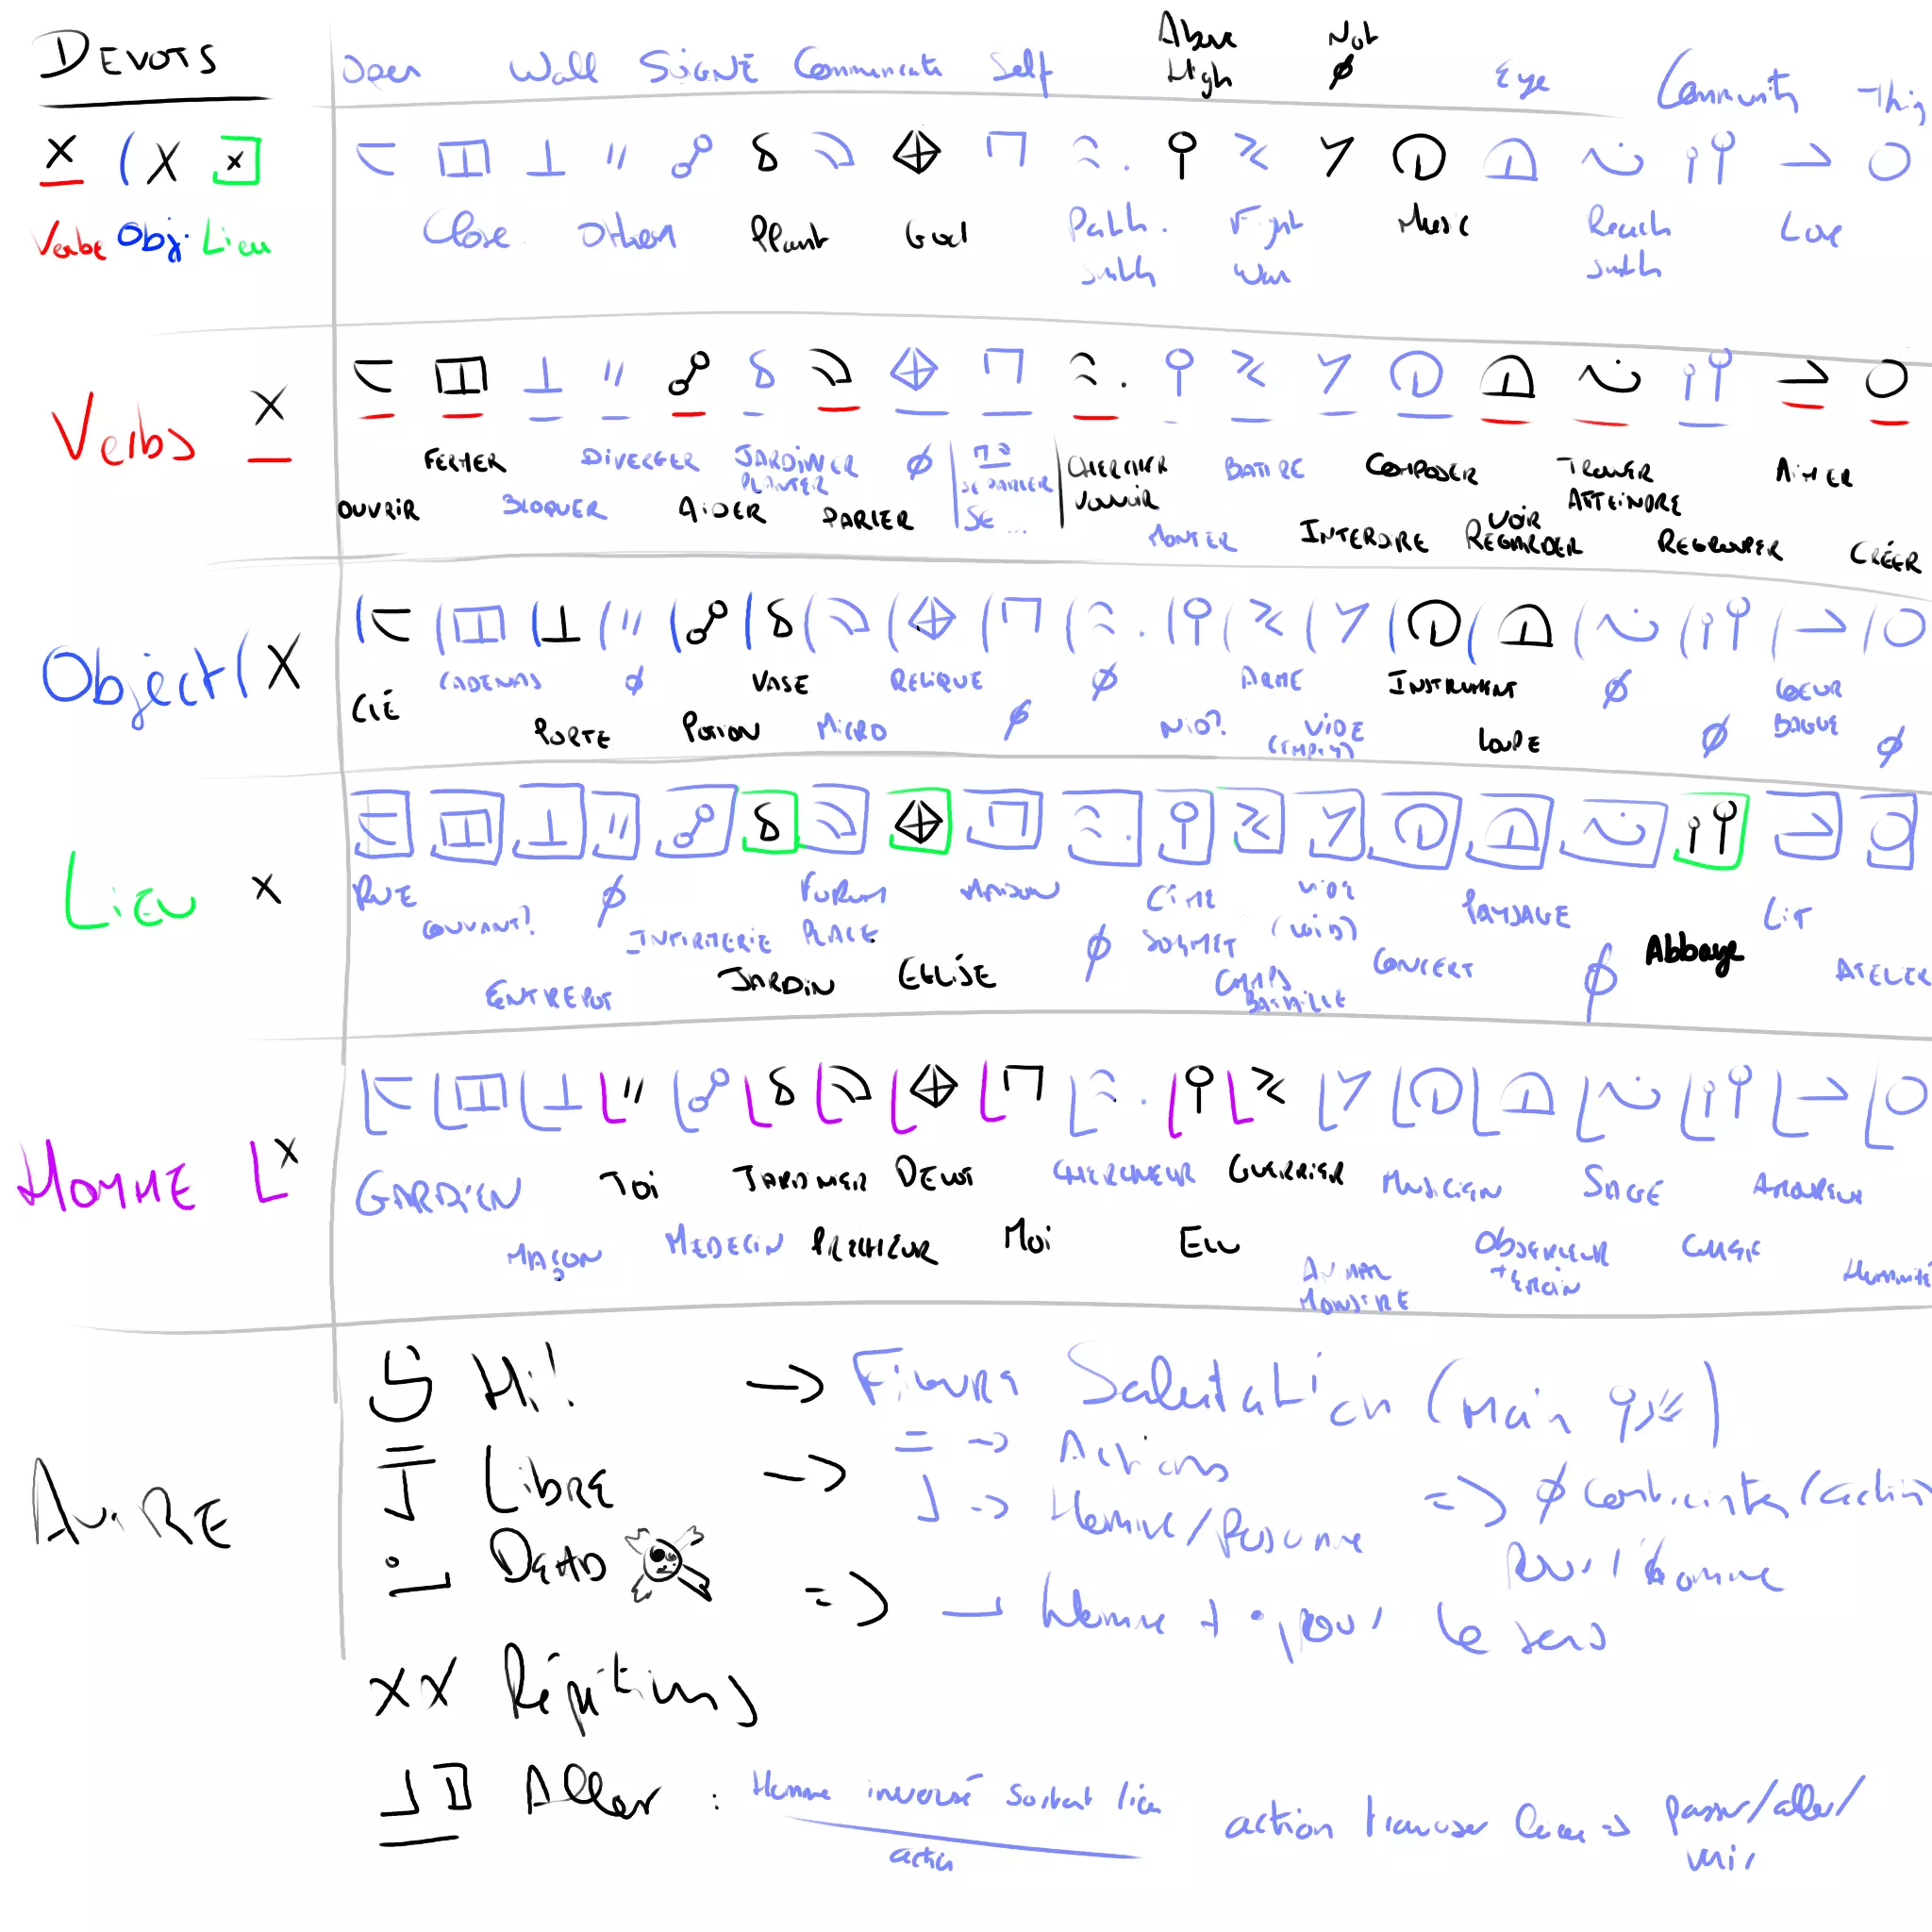 DEVOTS
Open Wall SOIGNÉ Communicate Self Above High Not Ø Eye Community Thing
X (X X
Verbe Obj. Lieu
Close Other Plant God Path. Fight War Music Reach Love
Verbs X
FERMER DIVERGER JARDINER PLANTER Ø SE PARLER CHERCHER VOULOIR BATIRE COMPOSER TROUVER ATTEINDRE AIMER
OUVRIR BLOQUER AIDER PARLER SE ... MONTER INTERDIRE VOIR REGARDER REGROUPER CRÉER
Object (X
CLÉ CADENAS Ø VASE RELIQUE Ø ARME INSTRUMENT Ø COEUR BAGUE
PORTE POTION MICRO Ø NID? VIDE (EMPTY) LOUPE Ø Ø
Lieu X
RUE COUVANT? Ø FORUM PLACE MAISON CIME SOMMET VIDE (VOID) PAYSAGE LIT
ENTREPOT INFIRMERIE JARDIN EGLISE Ø CHAMPS BATAILLE CONCERT Ø Abbaye ATELIER
HOMME L X
GARDIEN TOI JARDINIER DEVOT CHERCHEUR GUERRIER MUSICIEN SAGE AMOUREUX
MAÇON MEDECIN PRECHEUR MOI ELU ANIMAL MONSTRE OBSERVEUR TEMOIN Humanité
AUTRE
Hi! → Figure Salutation (Main)
Libre → = → Actions
→ Homme/Personne => Ø Contrainte (action
pour l'homme
DEAD => Homme + • pour le sens
XX Répétitions
Aller : Homme inversé sortant lieu
action
action traverser lieu => passer/aller/
venir